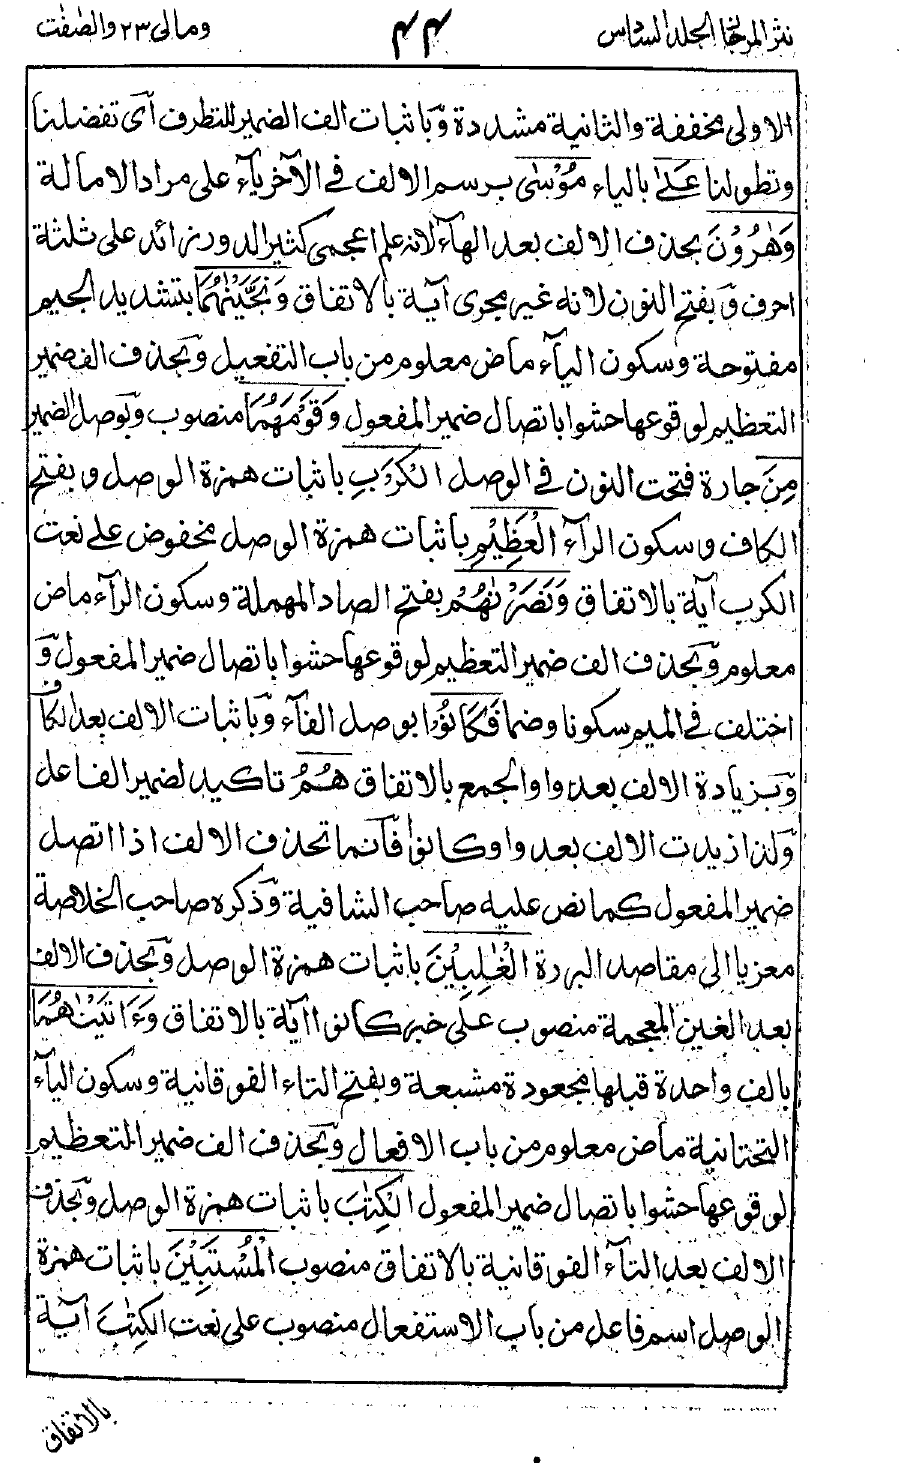 نثر المرجان الجلد السادس ۴۴ ومالی ۲۳ والصّٰفّٰت
الاولی مخففة والثانیة مشددة وَبا ثبات الف الضمیر للتطرف آی تفضلنا
وتطولنا عَلیٰ بالیاء مُوْسٰی برسم الالف فی الآخر یآء علی مراد الامالة
وَهٰرُوْنَ بحذف الالف بعد الهآء لانه علم اعجمی کثیر الدور زائد علی ثلثة
احرف وَبفتح النون لانه غیر مجری آیة بالاتفاق وَنَجَّیْنٰهُمَا بتشدید الجیم
مفتوحة وسکون الیآء ماض معلوم من باب التفعیل وَبحذف الف ضمیر
التعظیم لوقوعها حشوا باتصال ضمیر المفعول وَقَوْمَهُمَا منصوب وَبوصل الضمیر
مِنَ جارة فتحت النون فی الوصل الْکَرْبِ باثبات همزة الوصل وبفتح
الکاف وسکون الرآء الْعَظِیْمِ باثبات همزة الوصل مخفوض علی نعت
الکرب آیة بالاتفاق وَنَصَرْنٰهُمْ بفتح الصاد المهملة وسکون الرآء ماض
معلوم وَبحذف الف ضمیر التعظیم لوقوعها حشوا باتصال ضمیر المفعول وَ
اختلف فی المیم سکونا وضما فَکَانُوْا بوصل الفآء وَباثبات الالف بعد الکاف
وَبزیادة الالف بعد واو الجمع بالاتفاق هُمُ تاکید لضمیر الفاعل
وَلذا زیدت الالف بعد واو کانوا فَانما تحذف الالف اذا اتصل
ضمیر المفعول کما نص علیه صاحب الشافیة وَذکره صاحب الخلاصة
معزیا الی مقاصد البردة الْغٰلِبِیْنَ باثبات همزة الوصل وَبحذف الالف
بعد الغین المعجمة منصوب علی خبر کانوا آیة بالاتفاق وَءَاتَیْنٰهُمَا
بالف واحدة قبلها مجعودة مشبعة وبفتح التاء الفوقانیة وسکون الیآء
التحتانیة ماض معلوم من باب الافعال وَبحذف الف ضمیر التعظیم
لوقوعها حشوا باتصال ضمیر المفعول الْکِتٰبَ باثبات همزة الوصل وَبحذف
الالف بعد التآء الفوقانیة بالاتفاق منصوب الْمُسْتَبِیْنَ باثبات همزة
الوصل اسم فاعل من باب الاستفعال منصوب علی نعت الکِتٰبَ آیة
بالاتفاق